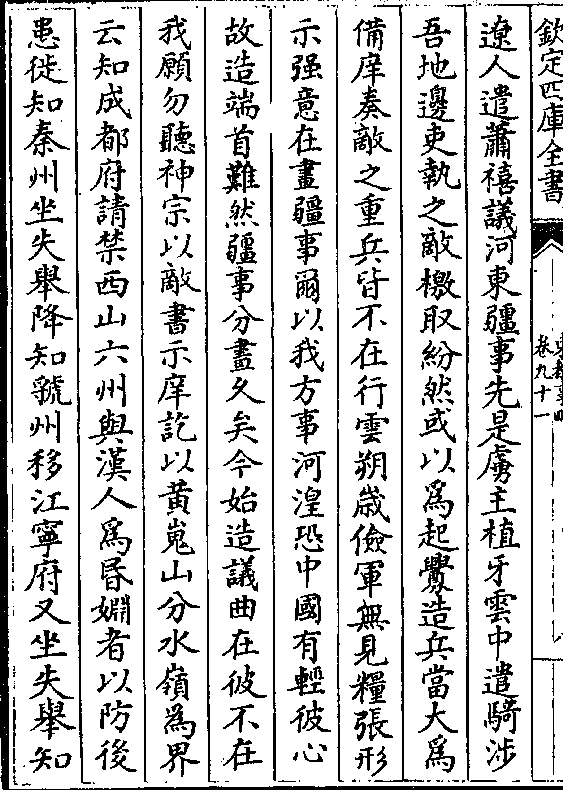 欽定四庫全書
東都事略
卷九十一
遼人遣蕭禧議河東疆事先是虜主植牙雲中遣騎涉
吾地邊吏執之敵檄取紛然或以為起釁造兵當大為
備庠奏敵之重兵皆不在行雲朔歳儉軍無見糧張形
示强意在畫疆事爾以我方事河湟恐中國有輕彼心
故造端首難然疆事分畫久矣今始造議曲在彼不在
我願勿聽神宗以敵書示庠訖以黄嵬山分水嶺為界
云知成都府請禁西山六州與漢人為昬婣者以防後
患徙知秦州坐失舉降知虢州移江寧府又坐失舉知